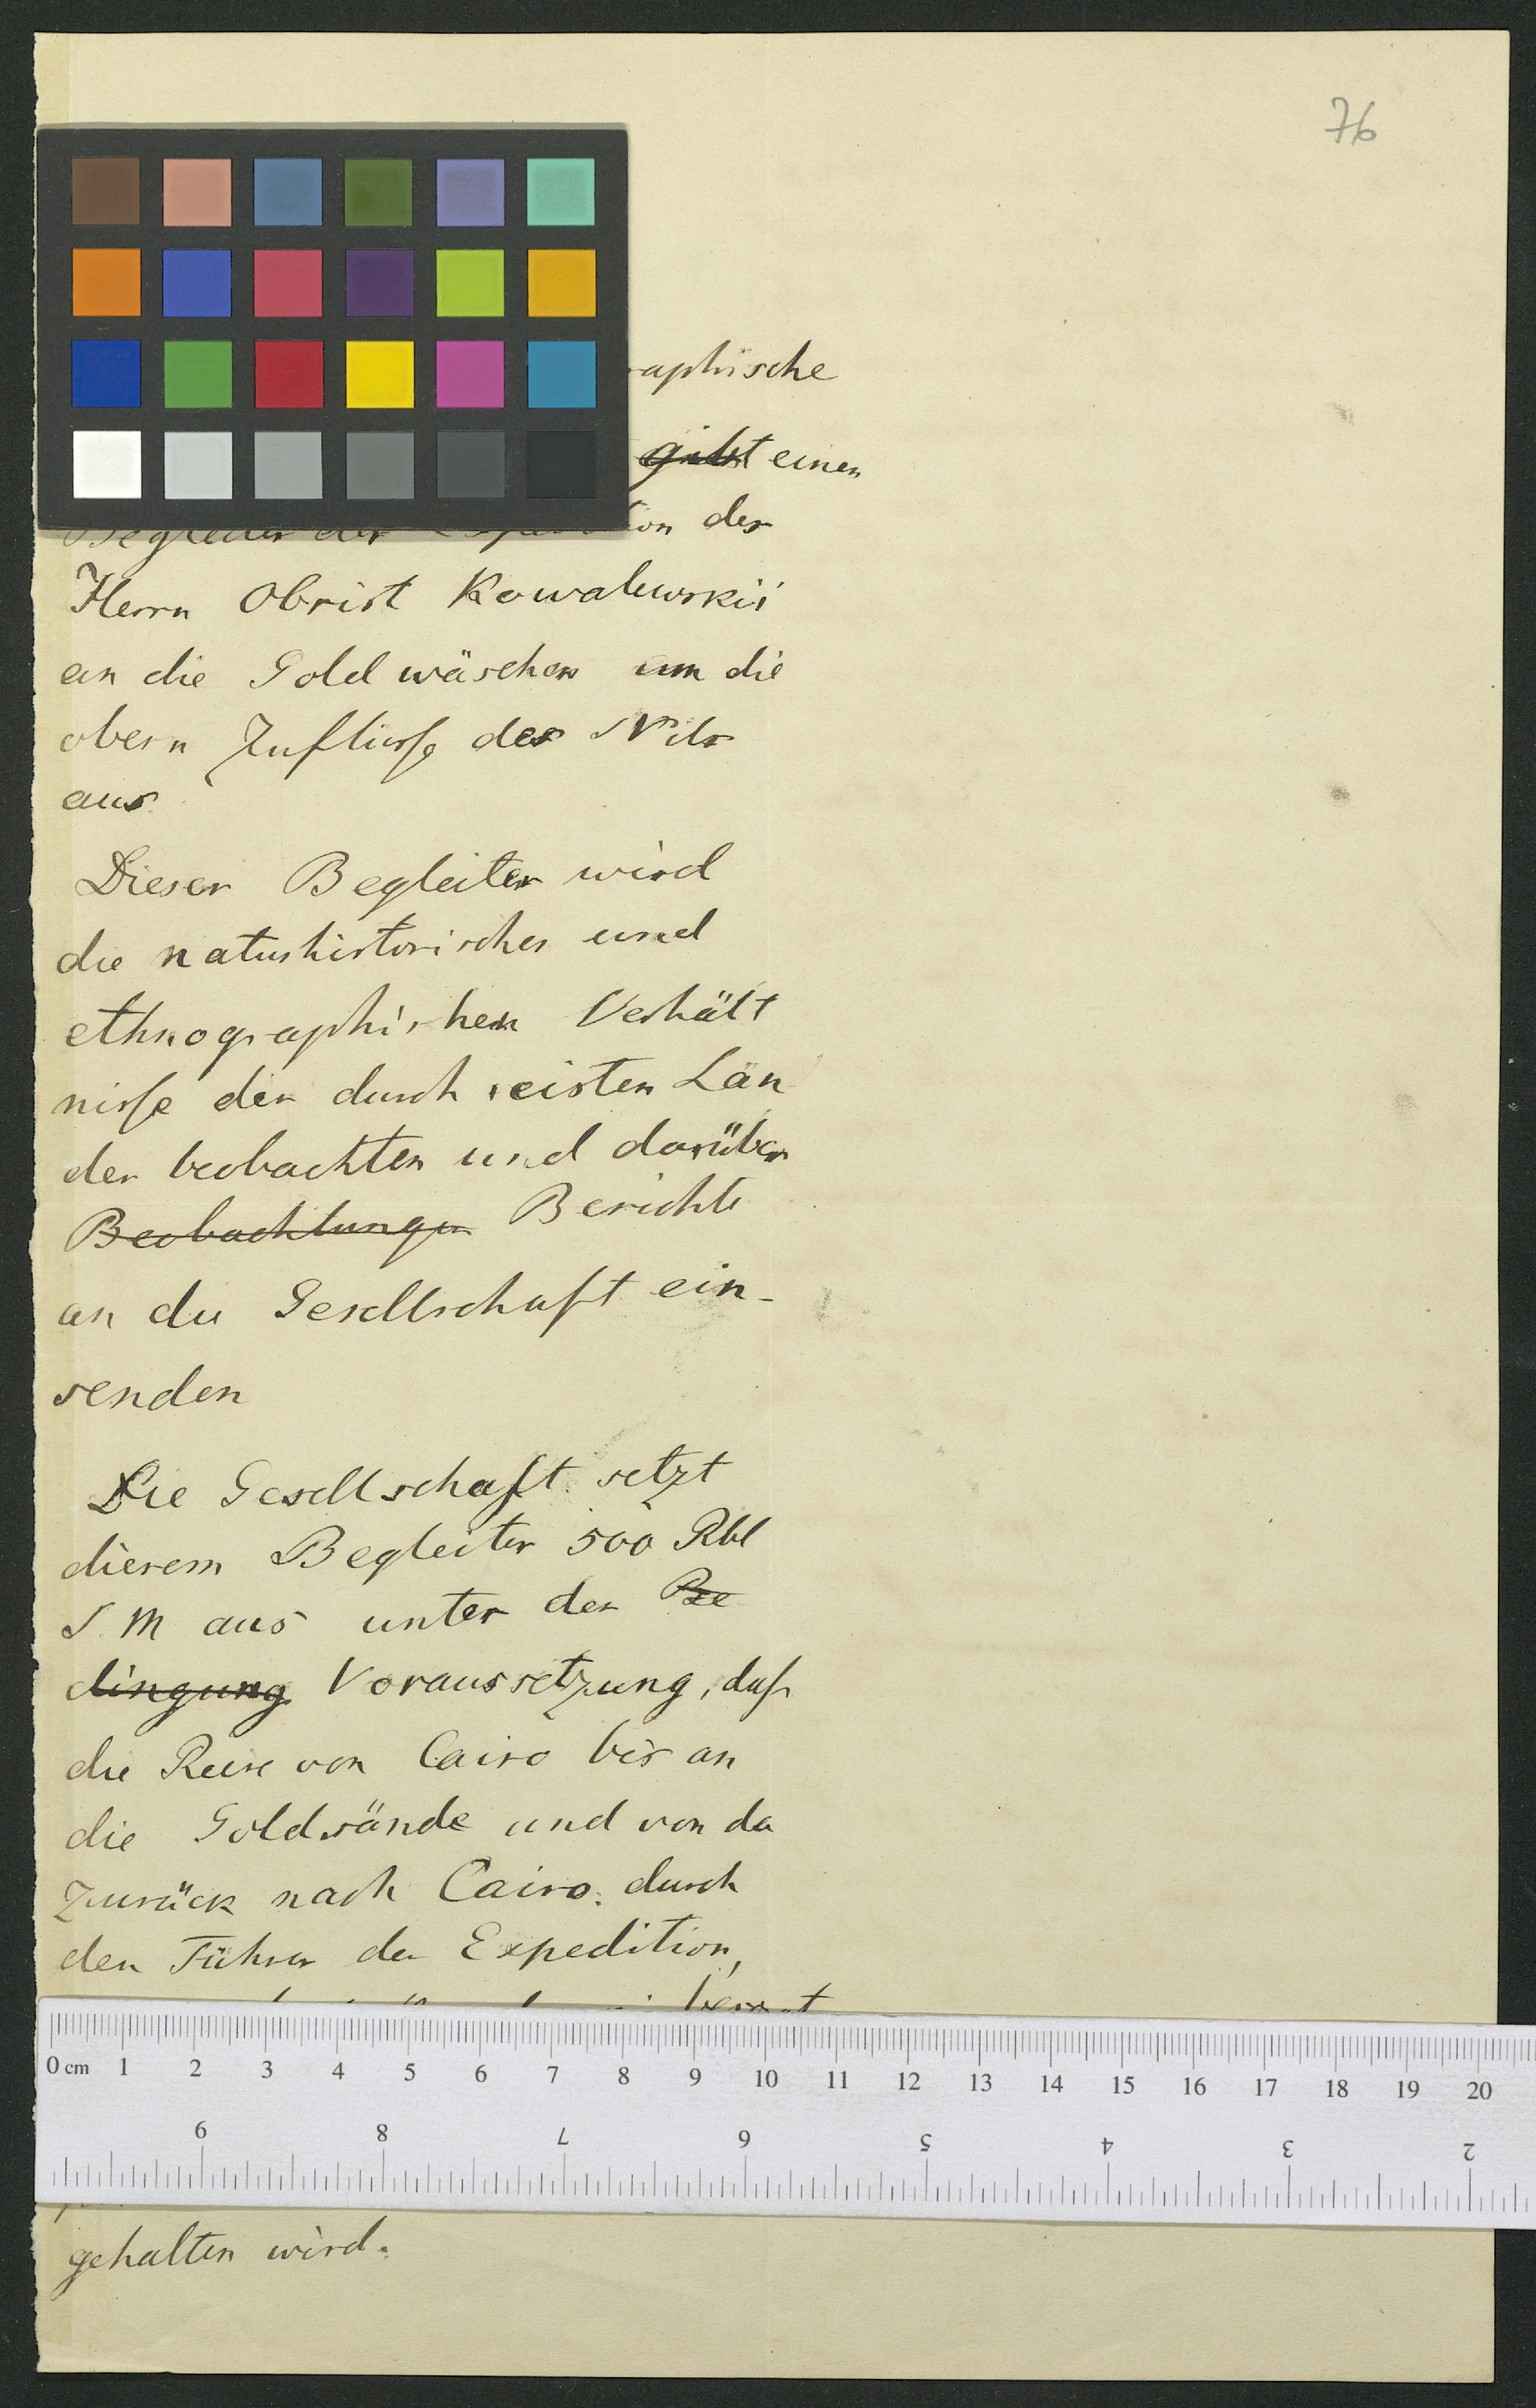 76
raphische
gibt einen
Begleiter der Expedition des
Herrn Obrist Kowalewskii
an die Goldwäschen um die
obern Zuflüsse des Nils
aus
Dieser Begleiter wird
die naturhistorischen und
ethnographischen Verhält
nisse der durch reisten Län
der beobachten und darüber
Beobachtungen Berichte
an die Gesellschaft ein-
senden
Die Gesellschaft setzt
diesem Begleiter 500 Rbl
S. M aus unter der Be
dingung Voraussetzung, daß
die Reise von Cairo bis an
die Goldsände und von da
zurück nach Cairo. durch
den Führer der Expedition,
0 cm 1 2 3 4 5 6 7 8 9 10 11 12 13 14 15 16 17 18 19 20
9 8 7 6 5 4 3 2
gehalten wird.